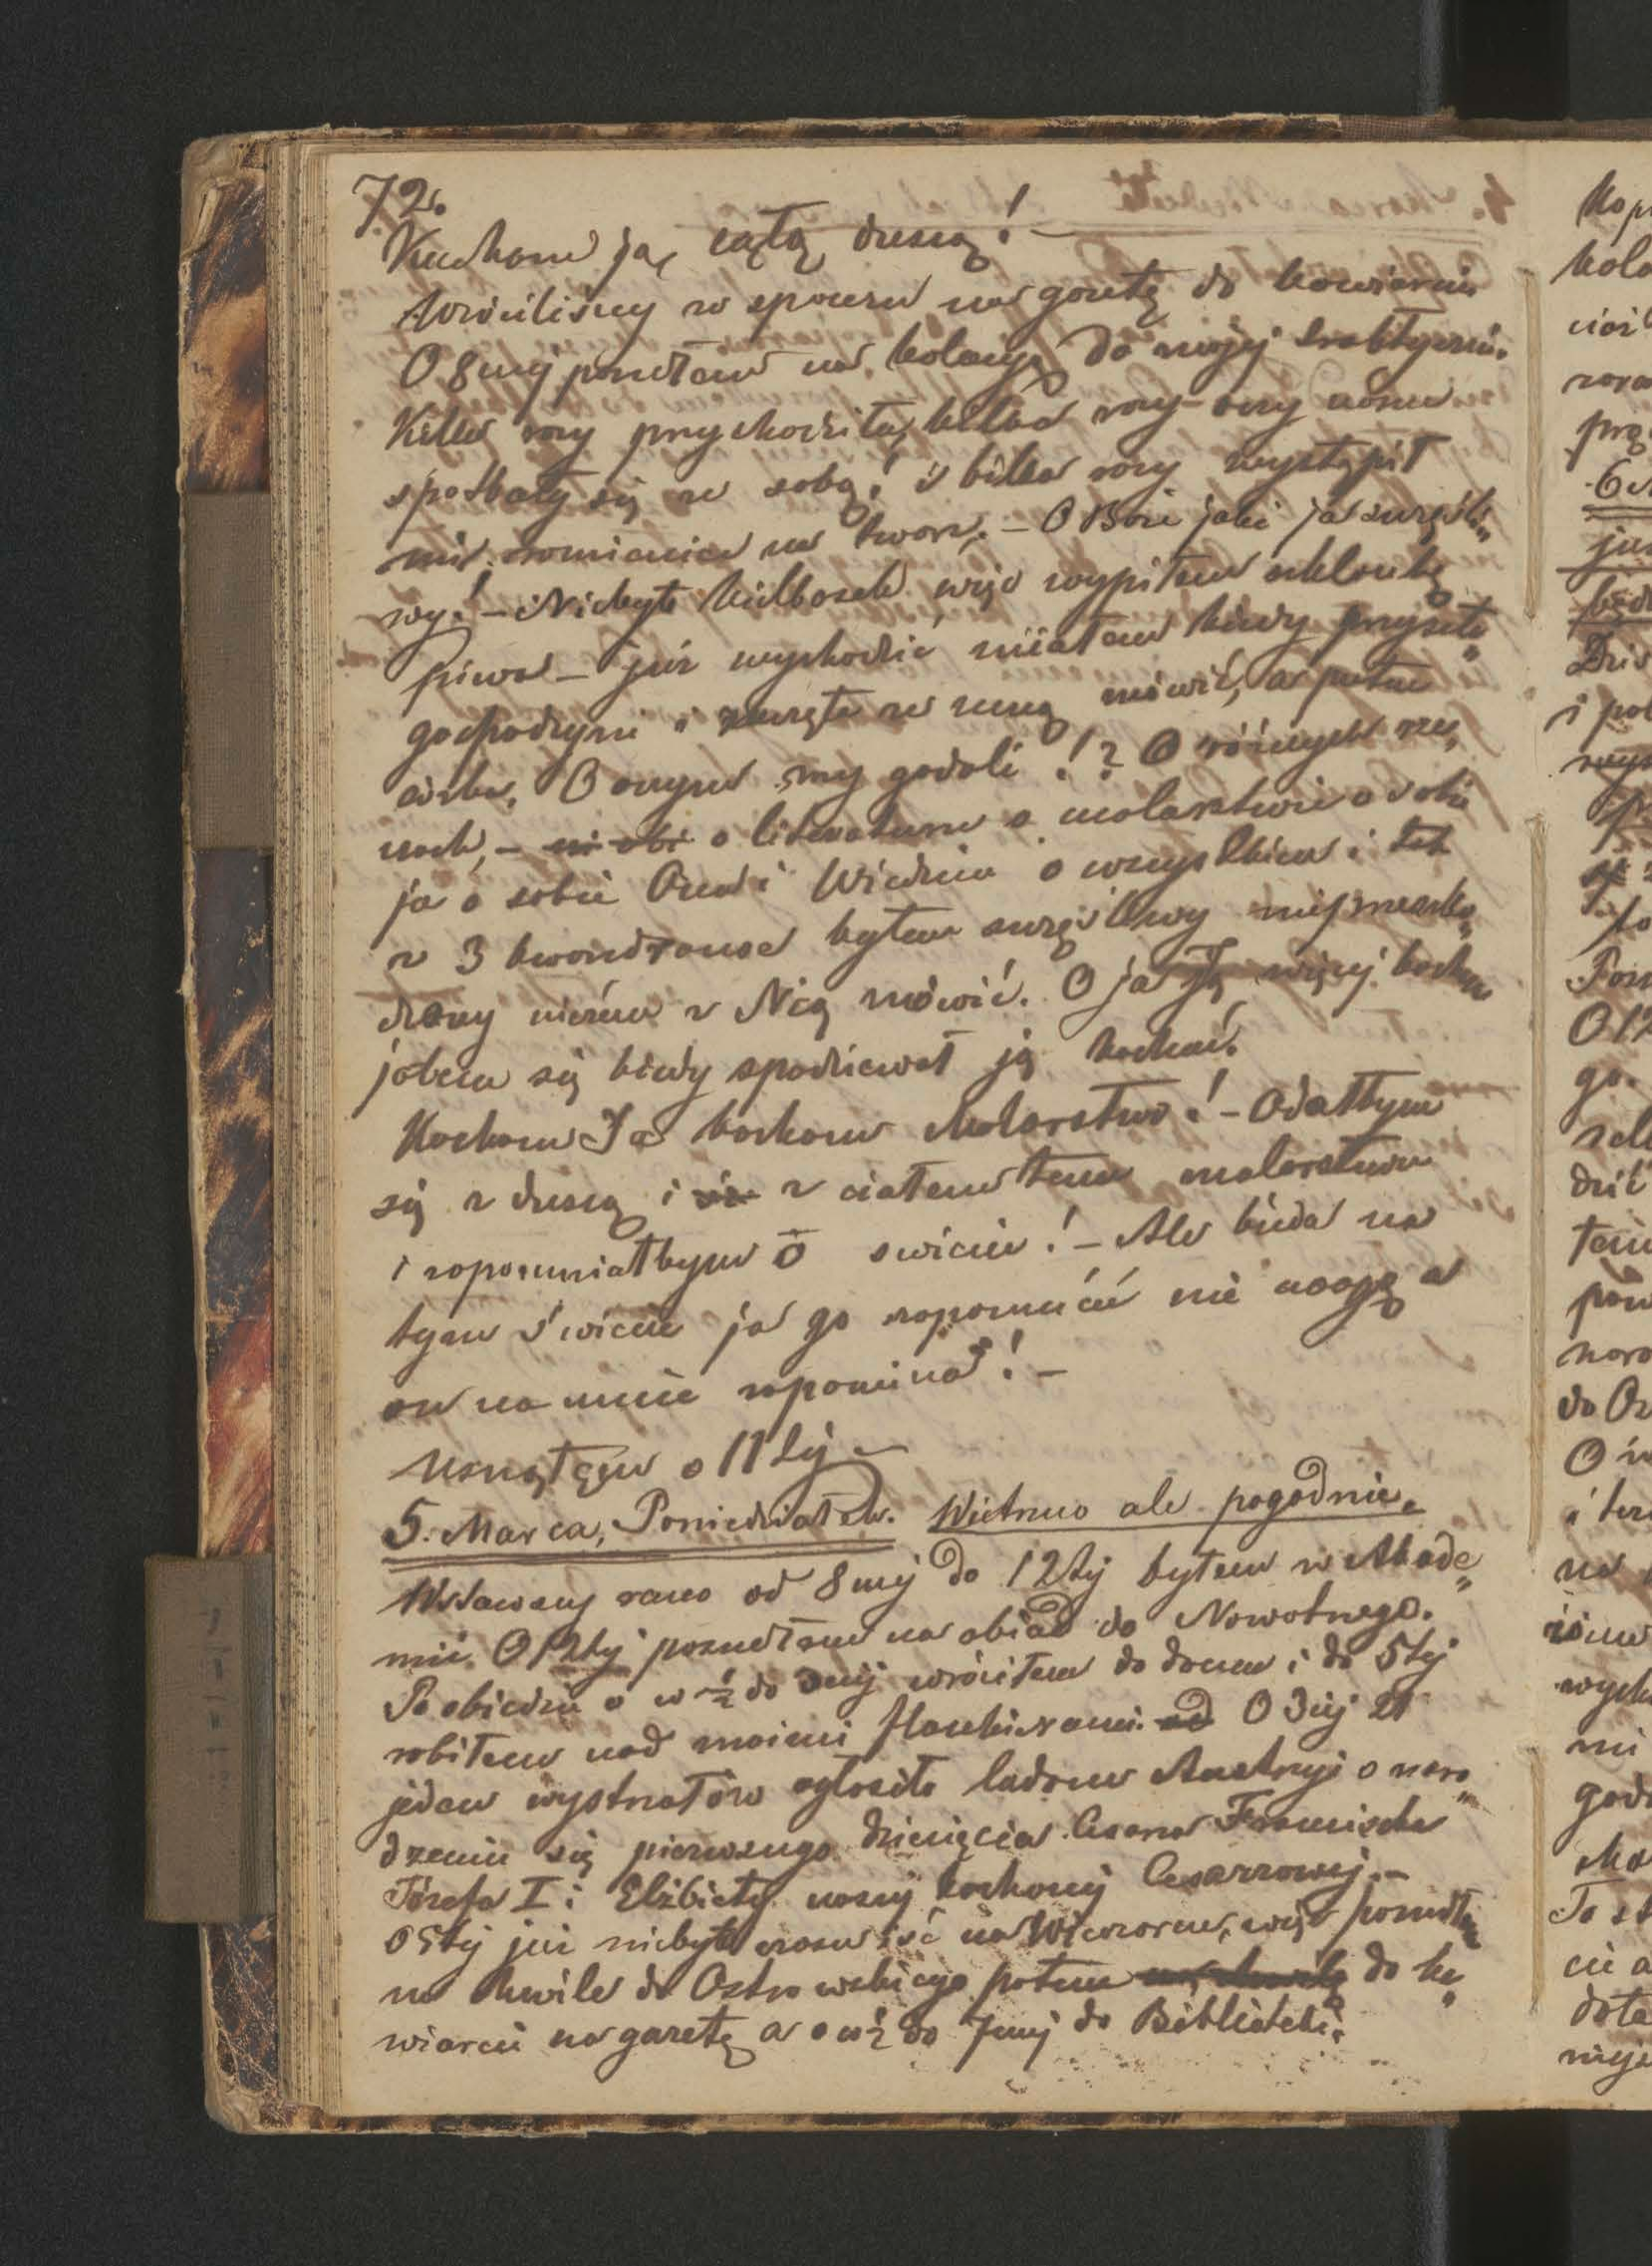 72.
Kocham ją, całą duszą! —
Wróciliśmy ze spaceru na gazetę do kawiarni
O 8mej poszedłem na kolacyą do mojej traktyerni.
Kilka razy przychodziła, kilka razy oczy nasze
spotkały się ze sobą! i kilka razy wystąpił
mi rumieniec na twarz. — O Boże jaki ja szczęśli„
wy! — Niebyło kiełbasek więc wypiłem szklankę
piwa — już wychodzić miałem kiedy przyszła„
gospodyni i zaczęła ze mną mówić, a potem
córka. O czym my gadali!? O różnych rze„
czach, — o literaturze o malarstwie o sobie
ja o sobie Ona i Wiedniu o wszystkiem i tak
z 3 kwandranse byłem szczęśliwy nieprzeszko„
dzony niczem z Nią mówić. O ja Ją więcej kocham
jakem się kiedy spodziewał ją kochać.
Kocham Ją kocham Malarstwo! — Oddałbym
się z duszą i z ciałem temu malarstwu
i zapomniałbym o świecie! — Ale bieda na
tym świecie ja go zapomnieć nie mogę a
on na mnie zapomina! —
Usnąłem o 11tej —
5. Marca, Poniedziałek. Wietrzno ale pogodnie.
Wstawszy rano od 8mej do 12tej byłem w Akade„
mii. O 12tej poszedłem na obiad do Nowotnego.
Po obiedzie o w ½ do 3ciej wróciłem do domu i do 5tej
robiłem nad moimi od O 3ciej 21
jeden wystrzałów ogłosiło ludowi Austryi o naro„
dzeniu się pierwszego dziecięcia Cesarza Franciszka
Józefa I i Elżbiety naszej kochanej Cesarzowej. —
O 5tej już niebyło czasu iść na Wieczorne, więc poszedłem
na chwile do Ostrowskiego potem do ka„
wiarni na gazetę a o w ½ do 7mej do Biblioteki.